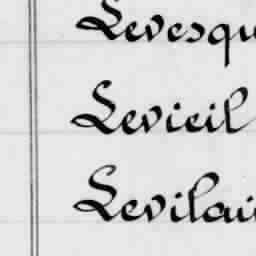 Levesqu
Levieil
Levilai